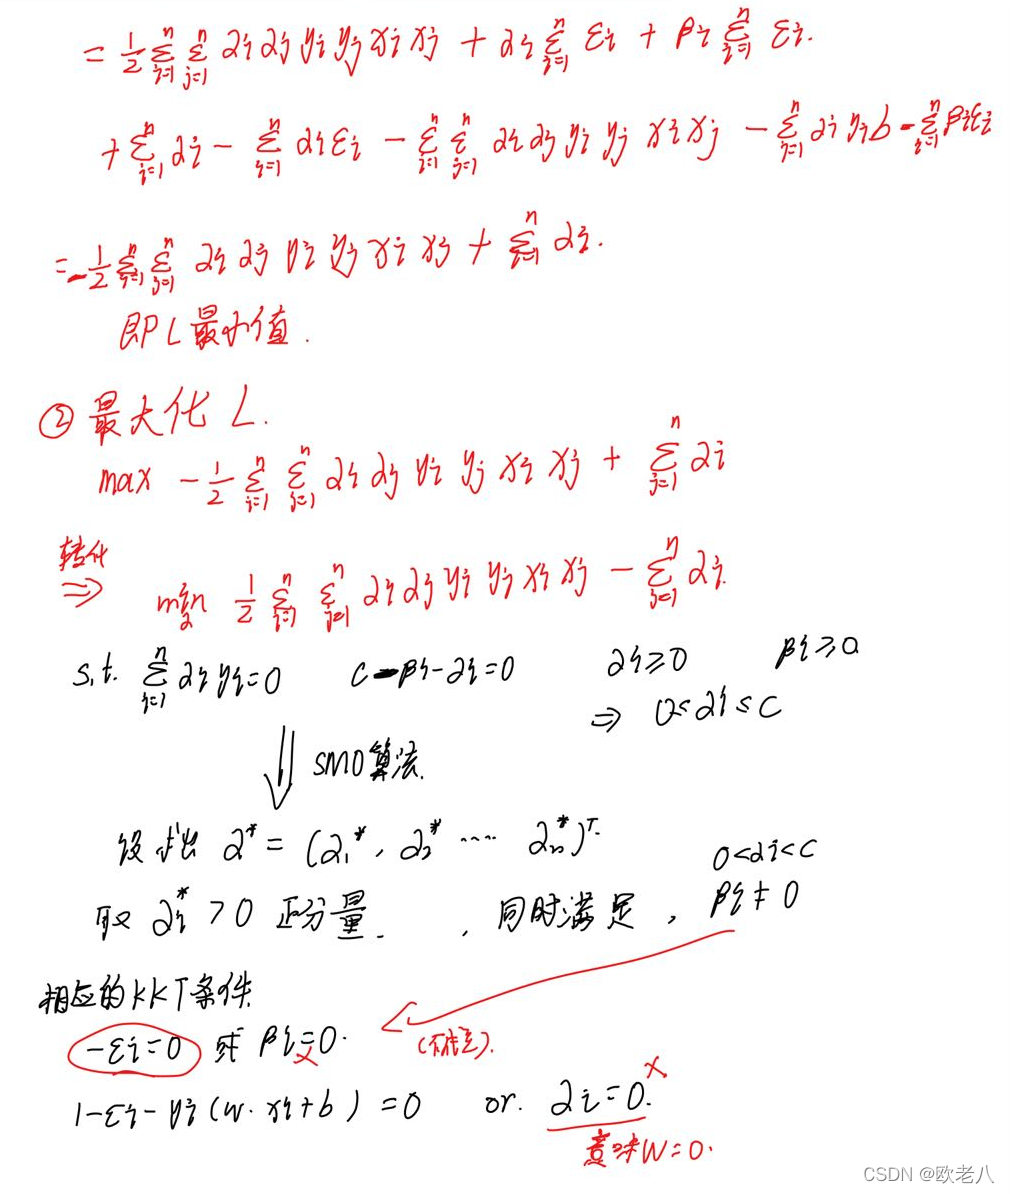 = 1/2 Σ_{i=1}^{n} Σ_{j=1}^{n} αi αj yi yj xi xj + αi Σ_{i=1}^{n} εi + βi Σ_{i=1}^{n} εi.
+ Σ_{i=1}^{n} αi - Σ_{i=1}^{n} αi εi - Σ_{i=1}^{n} Σ_{j=1}^{n} αi αj yi yj xi xj - Σ_{i=1}^{n} αi yi b - Σ_{i=1}^{n} βi εi
= -1/2 Σ_{i=1}^{n} Σ_{j=1}^{n} αi αj yi yj xi xj + Σ_{i=1}^{n} αi.
即P L最小值.
② 最大化 L.
max -1/2 Σ_{i=1}^{n} Σ_{j=1}^{n} αi αj yi yj xi xj + Σ_{i=1}^{n} αi
转化
⇒ min_α 1/2 Σ_{i=1}^{n} Σ_{j=1}^{n} αi αj yi yj xi xj - Σ_{i=1}^{n} αi.
s.t. Σ_{i=1}^{n} αi yi = 0 C - βi - αi = 0 αi ≥ 0 βi ≥ 0
⇒ 0 ≤ αi ≤ C
⇓ SMO算法.
设求出 α* = (α1*, α2* .... αn*)^T.
0 < αi < C
取 αi* > 0 正分量. , 同时满足, βi ≠ 0
相应的KKT条件
-εi = 0 或 βi = 0. x (不成立).
1 - εi - yi (w·xi + b) = 0 or. αi = 0. x
意味W = 0.
CSDN @欧老八